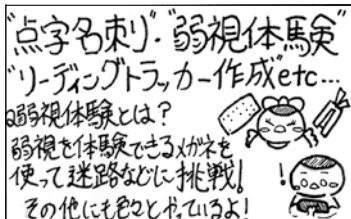 "点字名刺"・"弱視体験"
"リーディングトラッカー作成"etc…
Q弱視体験とは？
弱視を体験できるメガネを
使って迷路などに挑戦!
その他にも色々とやっているよ!
!